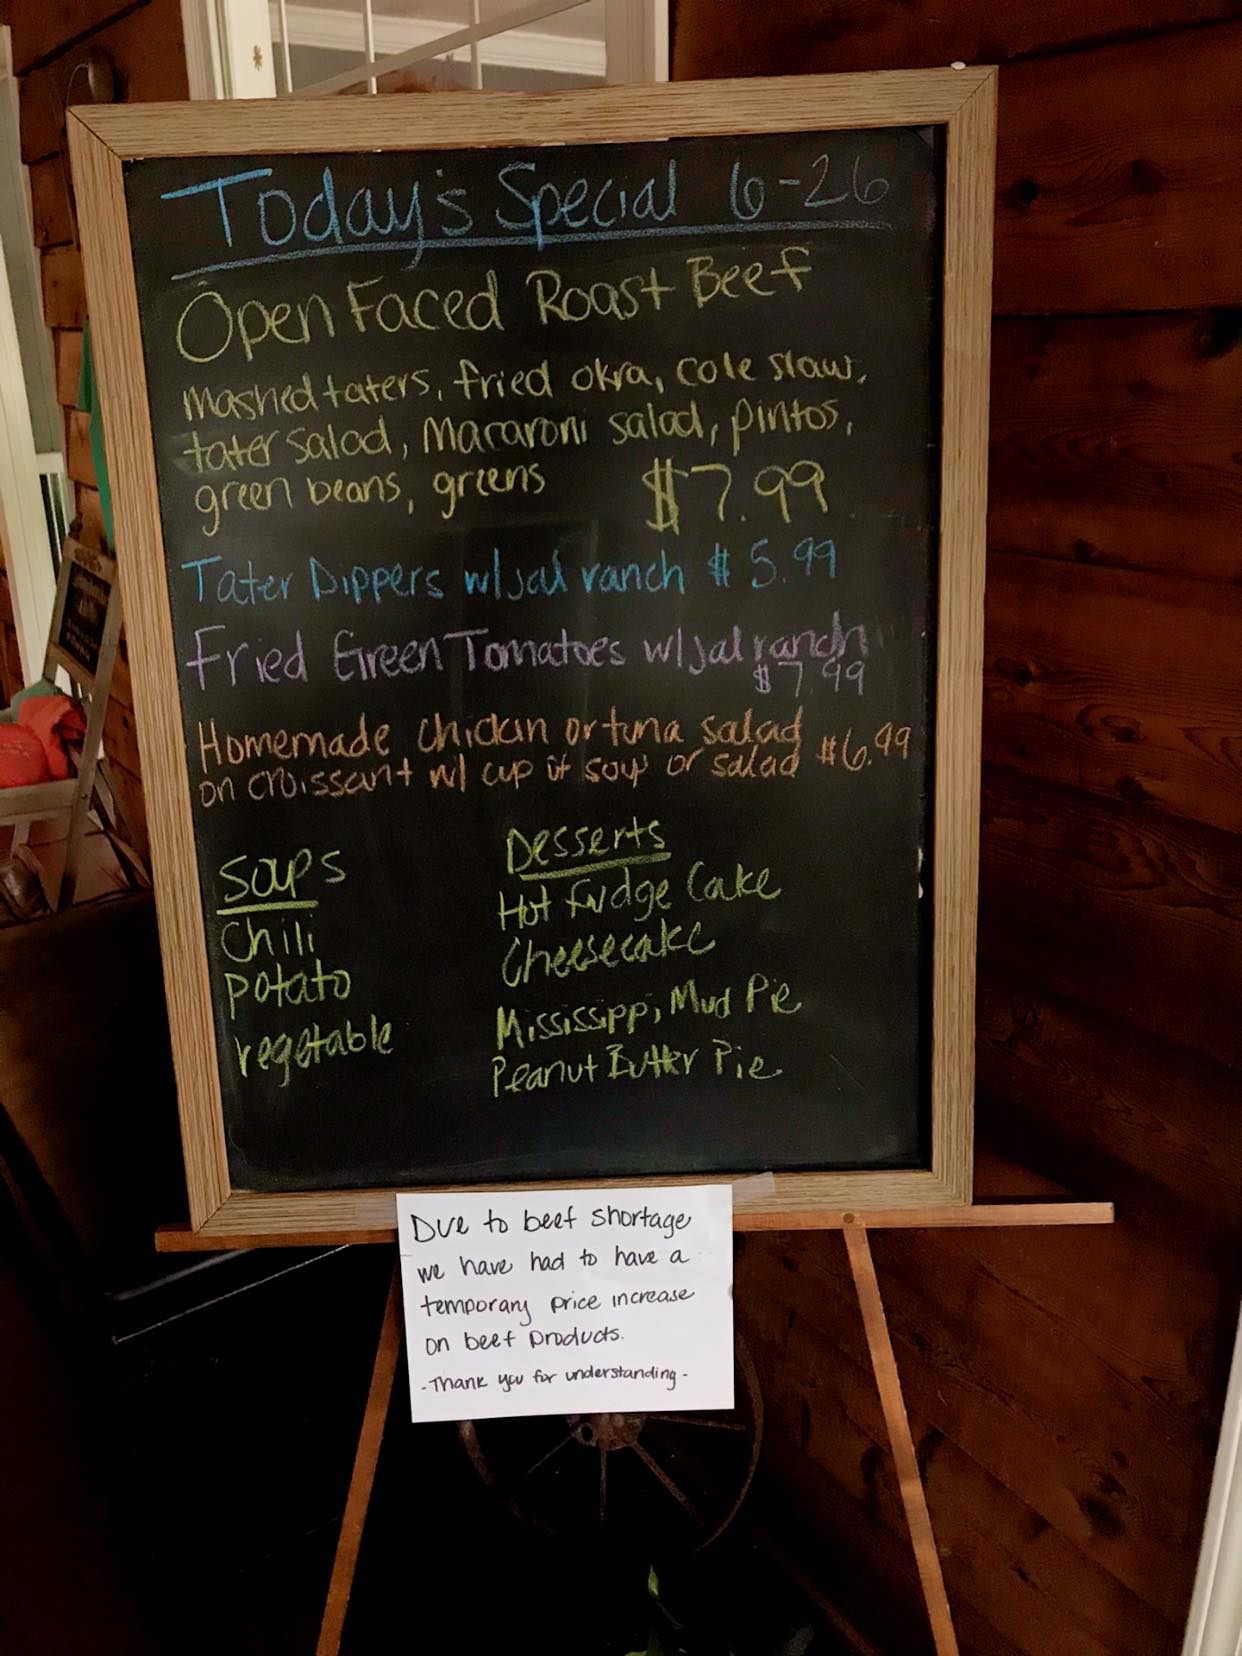 Today's Special 6-26
Open Faced Roast Beef
mashed taters, fried okra, cole slaw,
tater salad, macaroni salad, pintos,
green beans, greens $7.99
Tater Dippers w/jal ranch $5.99
Fried Green Tomatoes w/jal ranch
$7.99
Homemade chicken or tuna salad
on croissant w/ cup of soup or salad $6.99
Soups
Chili
potato
vegetable
Desserts
Hot Fudge Cake
Cheesecake
Mississippi Mud Pie
Peanut Butter Pie
Due to beef shortage
we have had to have a
temporary price increase
on beef products.
-Thank you for understanding-